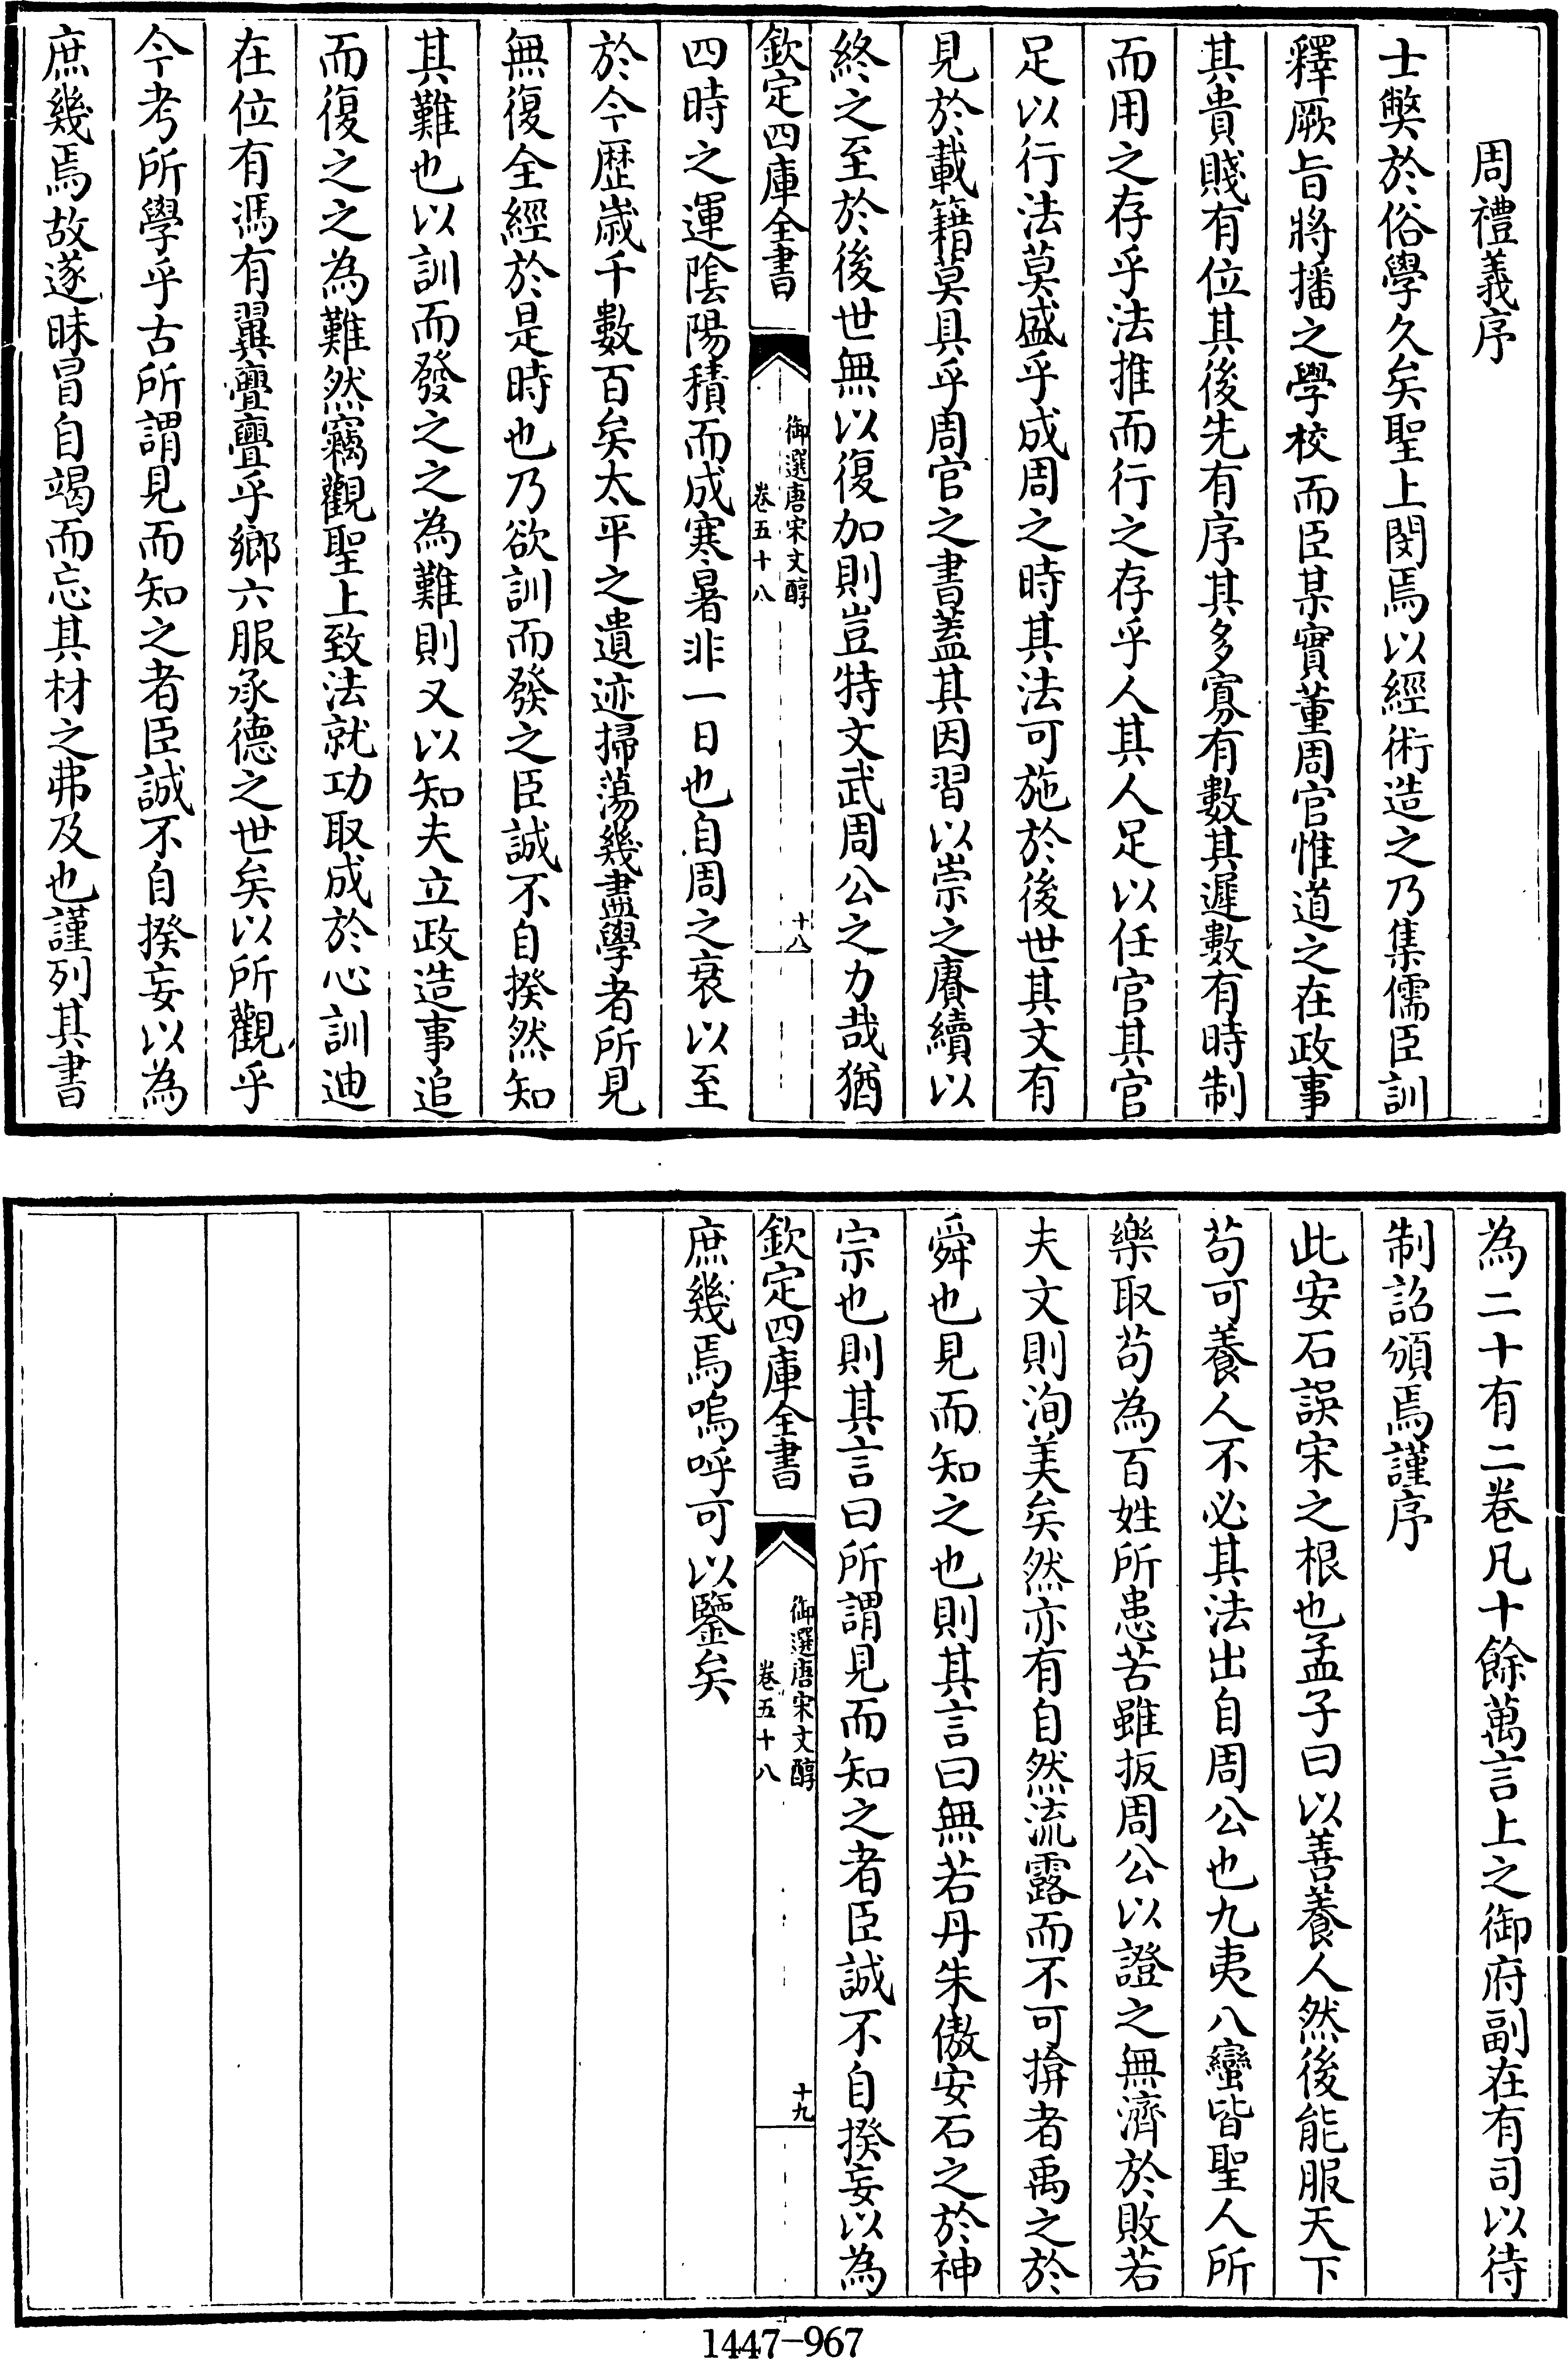 周禮義序
士弊於俗學久矣聖上閔焉以經術造之乃集儒臣訓
釋厥旨將播之學校而臣某實董周官惟道之在政事
其貴賤有位其後先有序其多寡有數其遲數有時制
而用之存乎法推而行之存乎人其人足以任官其官
足以行法莫盛乎成周之時其法可施於後世其文有
見於載籍莫具乎周官之書蓋其因習以崇之賡續以
終之至於後世無以復加則豈特文武周公之力哉猶
欽定四庫全書
御選唐宋文醇
卷五十八
十八
四時之運隂陽積而成寒暑非一日也自周之衰以至
於今歴歲千數百矣太平之遺迹掃蕩幾盡學者所見
無復全經於是時也乃欲訓而發之臣誠不自揆然知
其難也以訓而發之之為難則又以知夫立政造事追
而復之之為難然竊觀聖上致法就功取成於心訓迪
在位有馮有翼亹亹乎鄉六服承德之世矣以所觀乎
今考所學乎古所謂見而知之者臣誠不自揆妄以為
庶幾焉故遂昧冒自竭而忘其材之弗及也謹列其書
為二十有二卷凡十餘萬言上之御府副在有司以待
制詔頒焉謹序
此安石誤宋之根也孟子曰以善養人然後能服天下
苟可養人不必其法出自周公也九夷八蠻皆聖人所
樂取苟為百姓所患苦雖扳周公以證之無濟於敗若
夫文則洵美矣然亦有自然流露而不可揜者禹之於
舜也見而知之也則其言曰無若丹朱傲安石之於神
宗也則其言曰所謂見而知之者臣誠不自揆妄以為
欽定四庫全書
御選唐宋文醇
卷五十八
十九
庶幾焉嗚呼可以鑒矣
1447-967